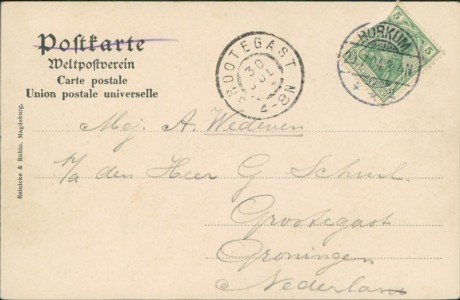 Postkarte
Weltpostverein
Carte postale
Union postale universelle
GROOTEGAST
30 JUL
4-8N
BORKUM
5 5
Reinicke & Rubin, Magdeburg.
Mej. A. Wedeven
p/a den Heer G
Grootegast
Groningen
Nederland